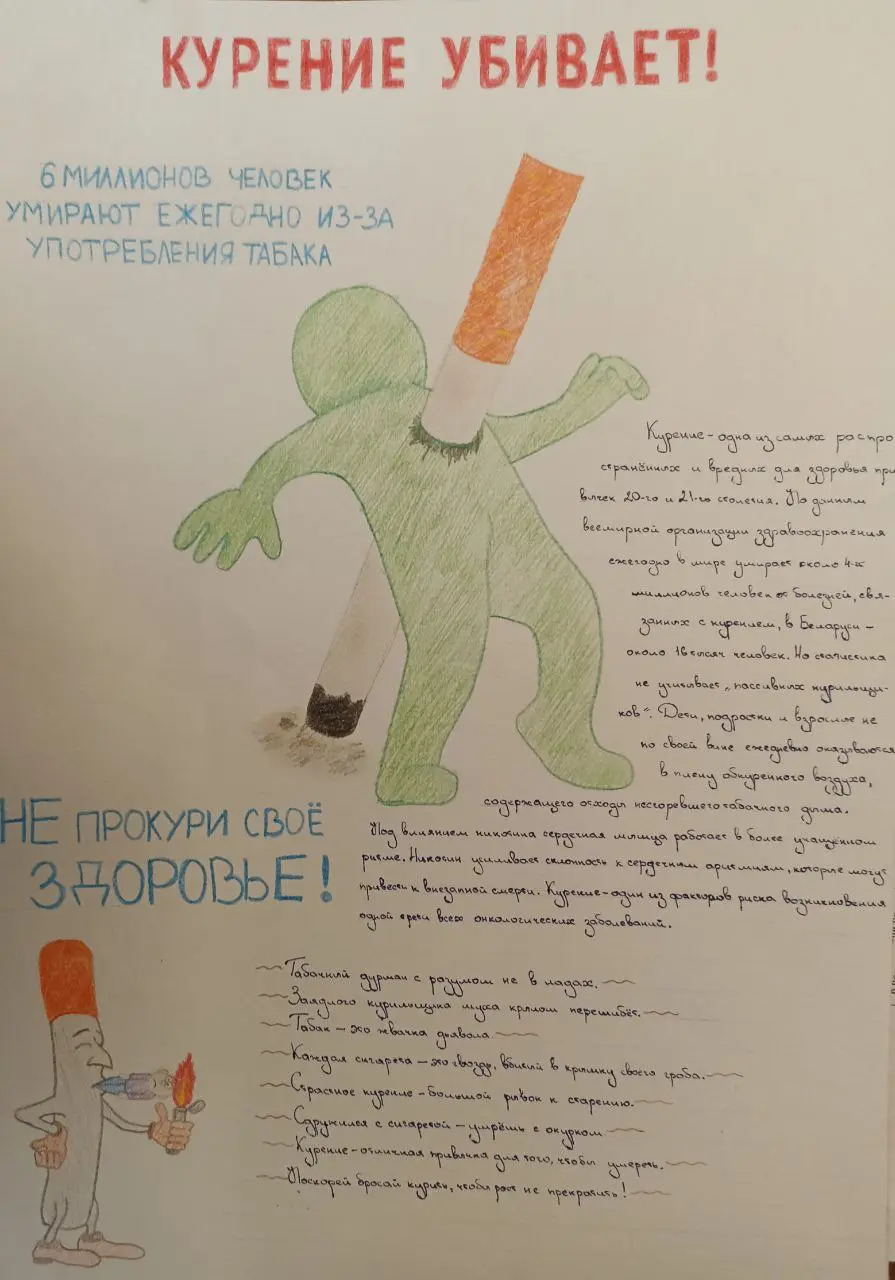 КУРЕНИЕ УБИВАЕТ!
6 МИЛЛИОНОВ ЧЕЛОВЕК
УМИРАЮТ ЕЖЕГОДНО ИЗ-ЗА
УПОТРЕБЛЕНИЯ ТАБАКА
Курение - одна из самых распро
странённых и вредных для здоровья при
вычек 20-го и 21-го столетия. По данным
всемирной организации здравоохранения
ежегодно в мире умирает около 4-х
миллионов человек от болезней, свя-
занных с курением, в Беларуси -
около 16 тысяч человек. Но статистика
не учитывает „пассивных курильщи-
ков“. Дети, подростки и взрослые не
по своей вине ежедневно оказываются
в плену обкуренного воздуха,
содержащего отходы несгоревшего табачного дыма.
Под влиянием никотина сердечная мышца работает в более учащённом
ритме. Никотин усиливает склонность к сердечным аритмиям, которые могут
привести к внезапной смерти. Курение - один из факторов риска возникновения
одной трети всех онкологических заболеваний.
НЕ ПРОКУРИ СВОЁ
ЗДОРОВЬЕ!
Табачный дурман с розумом не в ладах.
Заядлого курильщика муха крылом перешибёт.
Табак - это жвачка дьявола.
Каждая сигарета - это гвоздь, вбитый в крышку своего гроба.
Страстное курение - большой рывок к старению.
Сдружился с сигаретой - умрёшь с окурком
Курение - отличная привычка для того, чтобы умереть.
Поскорей бросай курить, чтобы рост не прекратить!